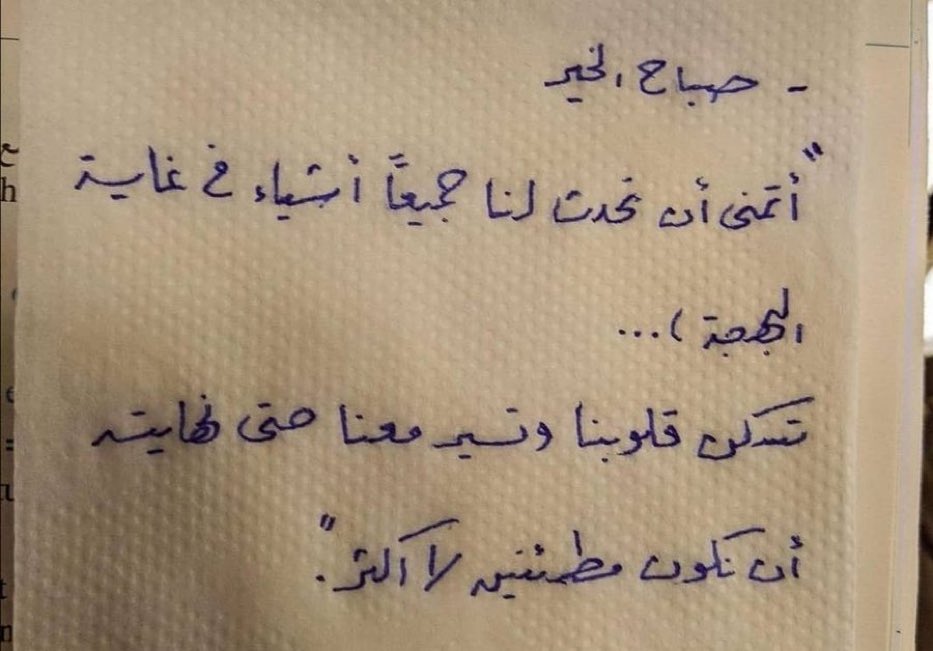 - صباح الخير
"أتمنى أن تحدث لنا جميعاً أشياء في غاية
البهجة )...
تسكن قلوبنا وتسير معنا حتى نهايته
أن نكون مطمئنين لا أكثر."